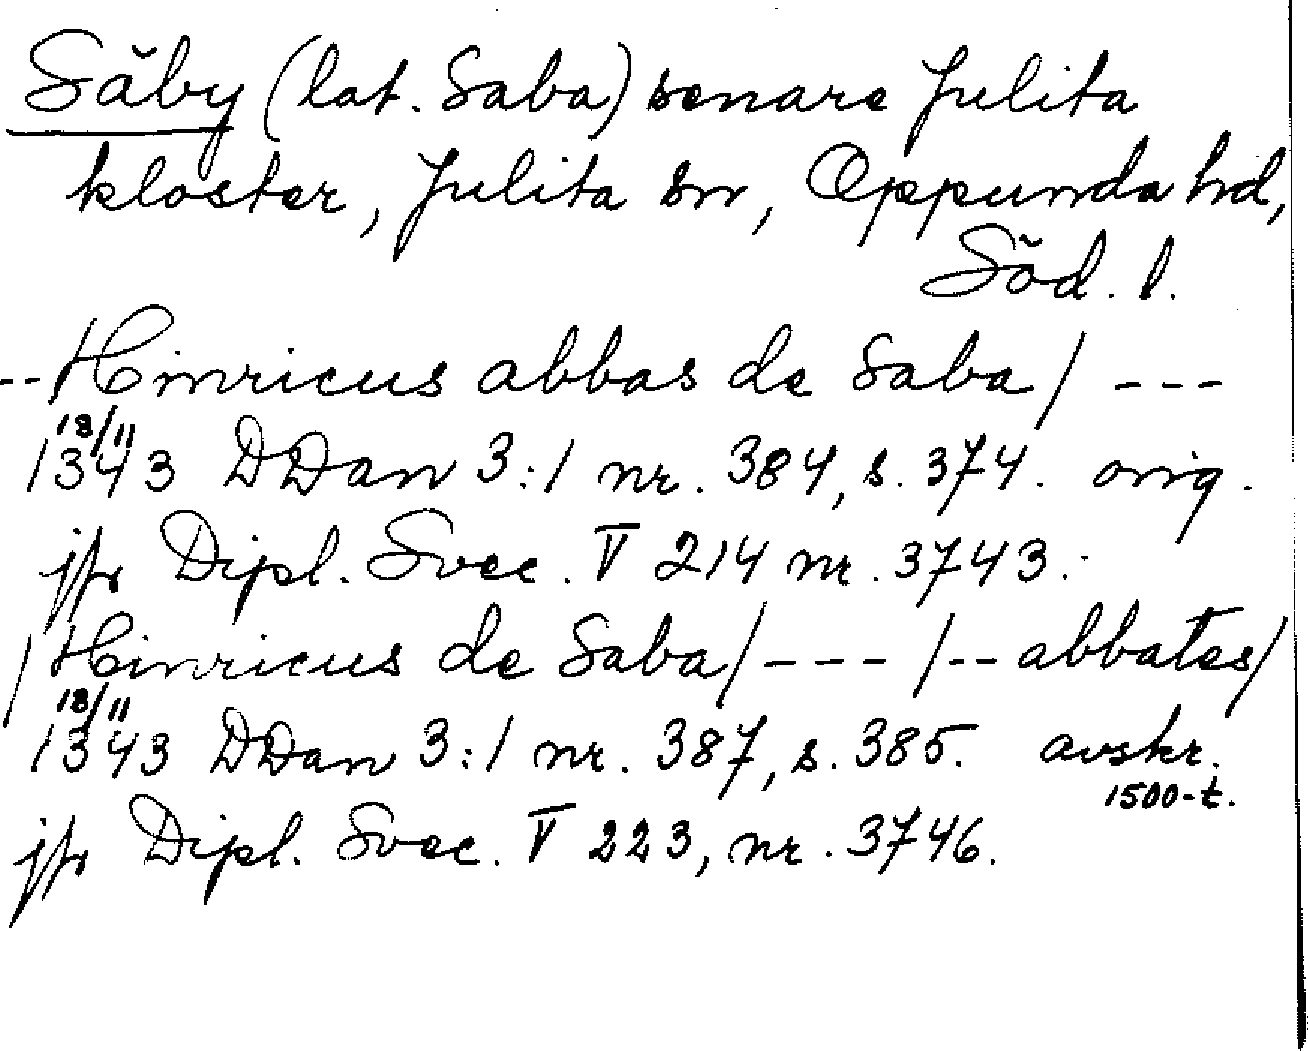 Säby (lat. Saba) senare Julita
kloster, Julita sn, Oppunda hd,
Söd. l.
--/Hinricus abbas de Saba/ ---
18/11
1343 DDan 3:1 nr. 384, s. 374. orig.
jfr Dipl. Svec. V 214 nr. 3743.
/Hinricus de Saba/--- /-- abbates/
18/11
1343 DDan 3:1 nr. 387, s. 385. avskr.
1500-t.
jfr Dipl. Svec. V 223, nr. 3746.